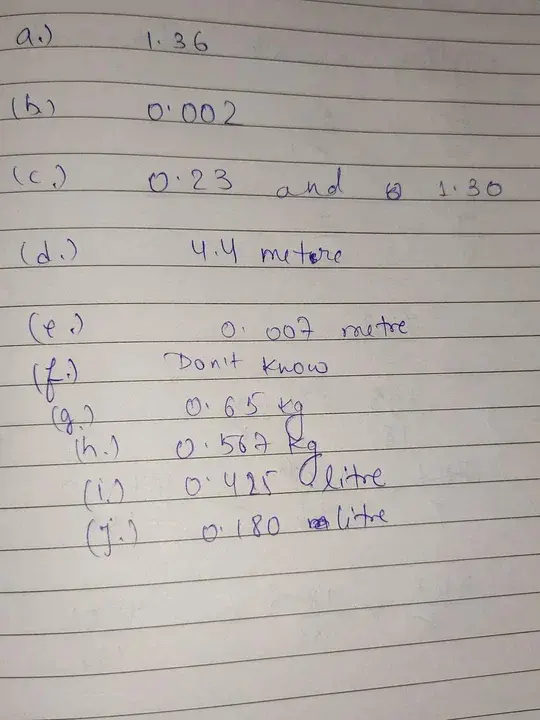 a.) 1.36
(b) 0.002
(c.) 0.23 and 1.30
(d.) 4.4 metere
(e.) 0.007 metre
(f.) Don't know
(g.) 0.65 kg
(h.) 0.567 kg
(i.) 0.425 litre
(j.) 0.180 litre